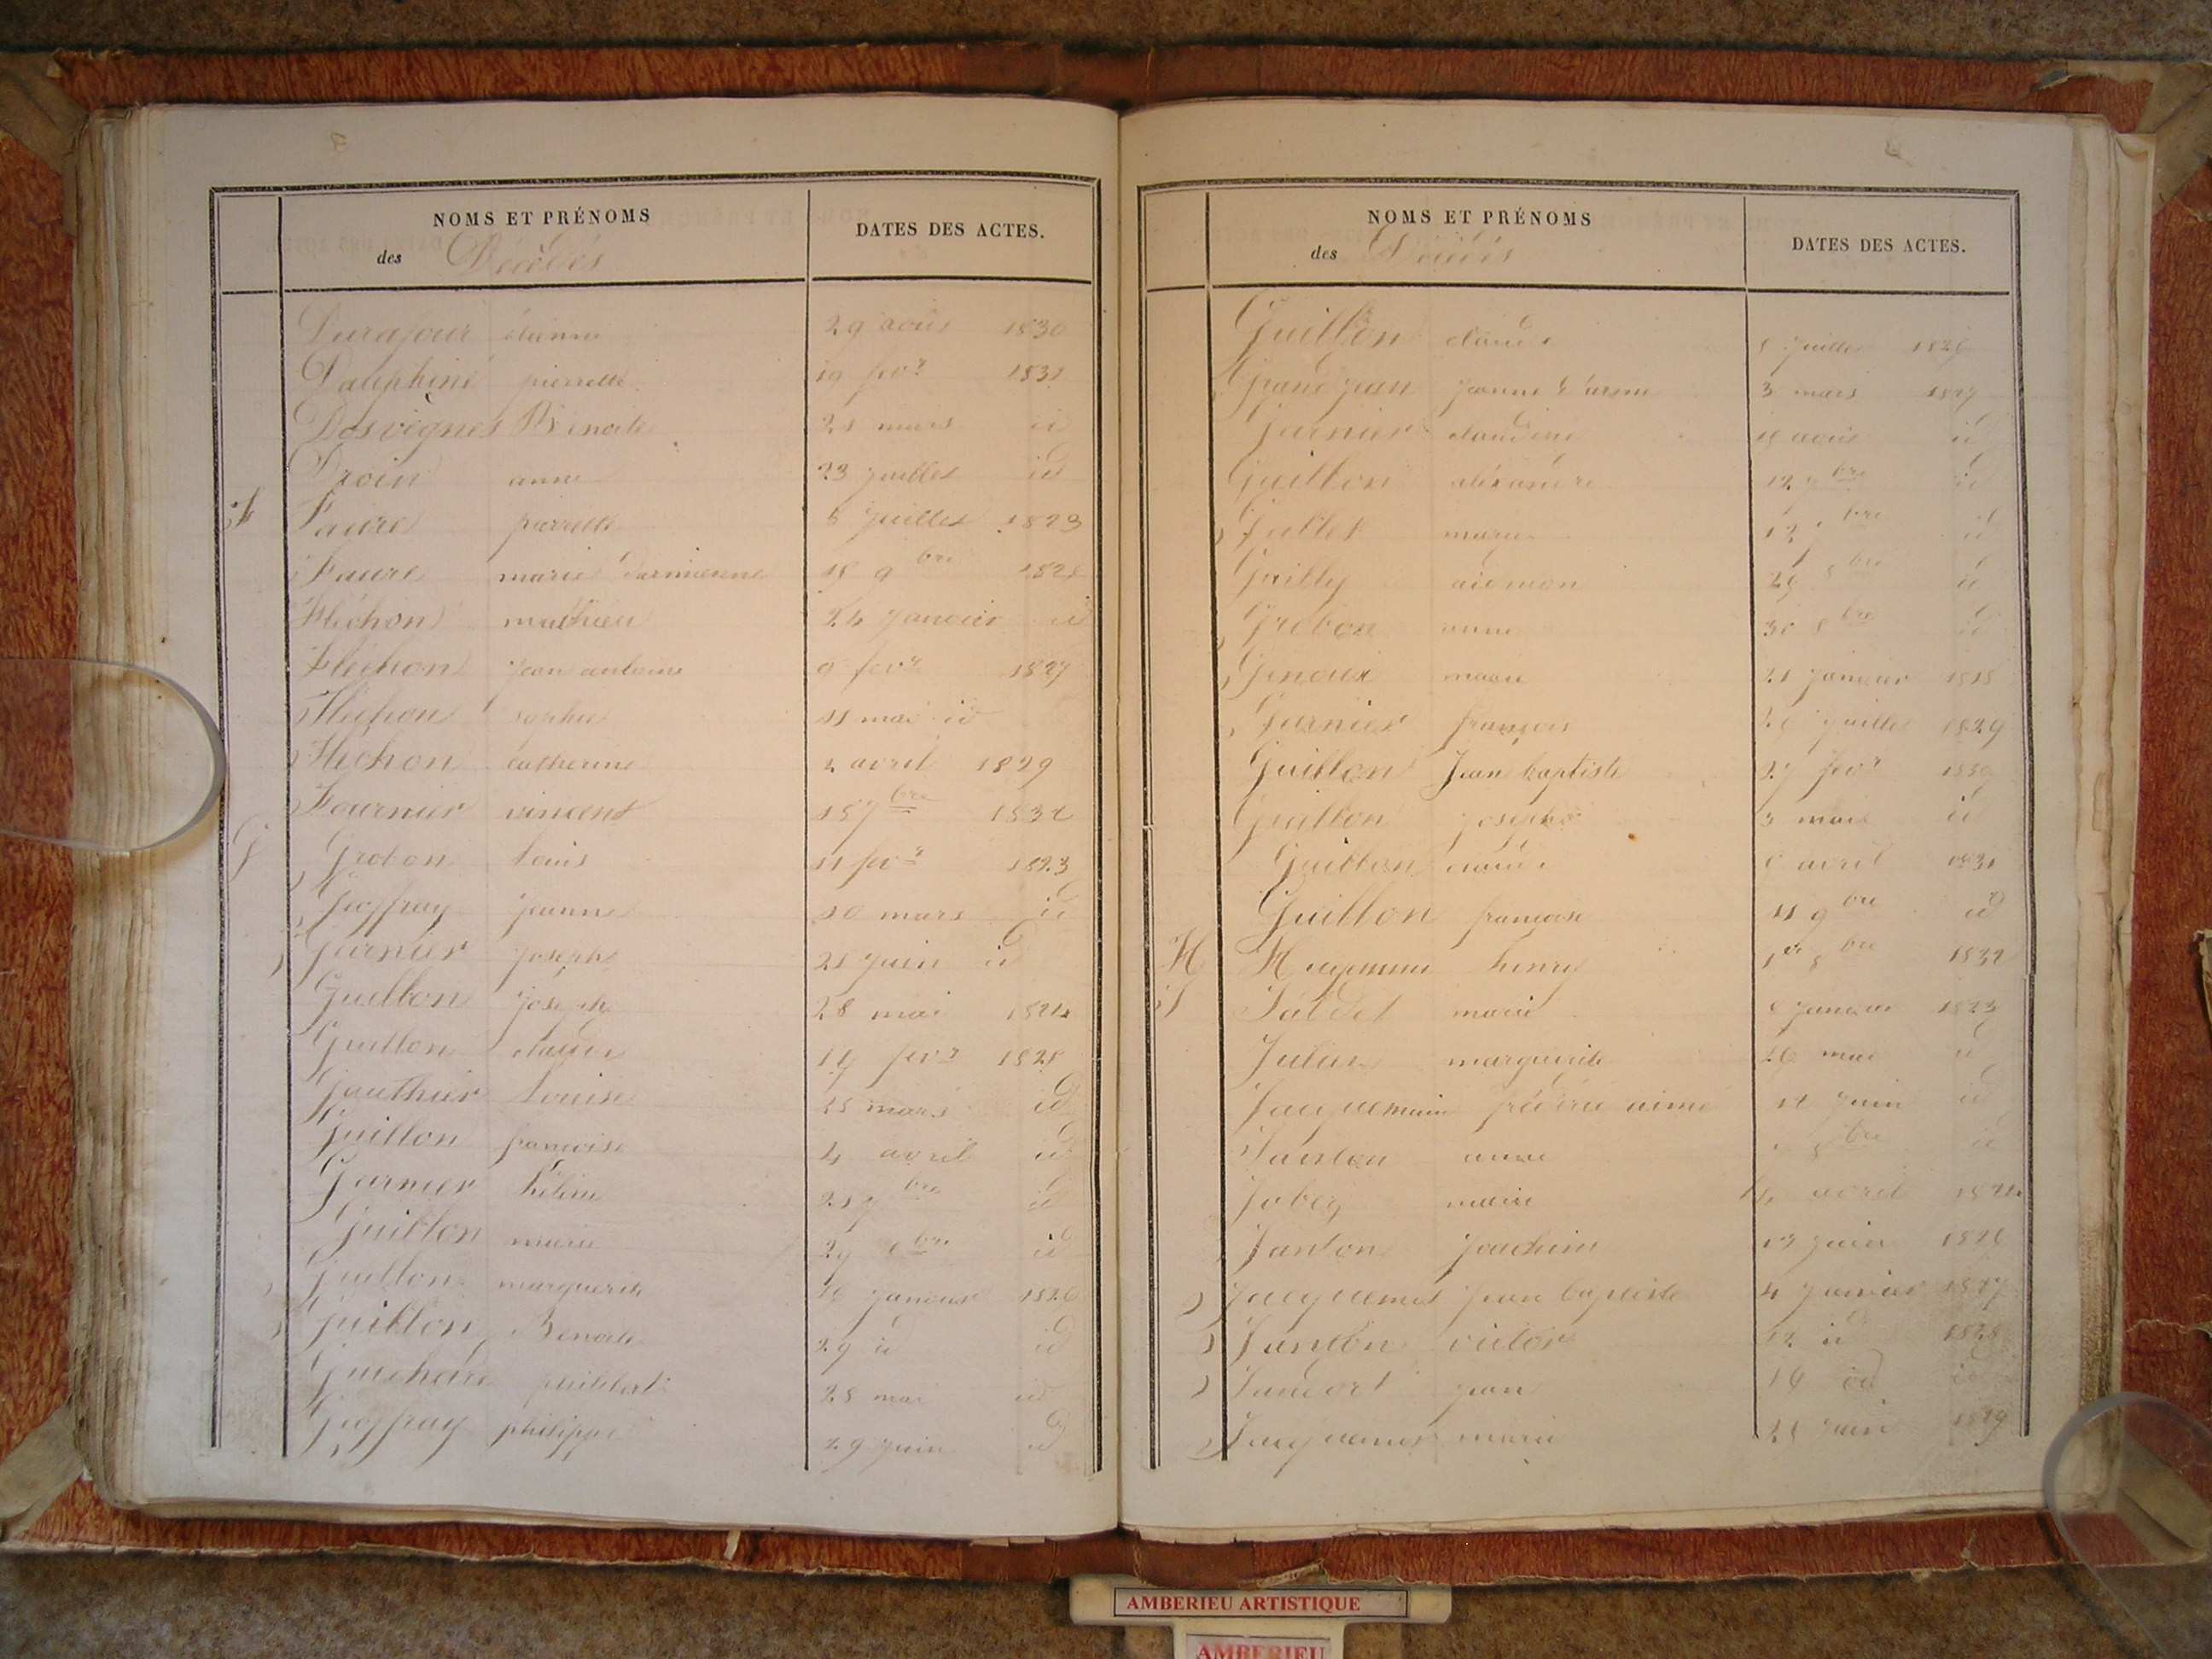 NOMS ET PRÉNOMS
des Décédés
DATES DES ACTES.
Durajour étienne 29 août 1830
Dauphiné pierrette 19 fevr 1831
Desvignes Benoite 21 mars id
Droin anne 23 juillet id
F Faure pierrette 6 juillet 1823
Faure marie 18 9bre 1825
Fléchon mathieu 24 janvier id
Fléchon jean antoine 9 fevr 1827
Fléchon sophie 11 mai id
Fléchon catherine 2 avril 1829
Fournier vincent 15 7bre 1832
G Grobon Louis 11 fevr 1823
Geoffray jeanne 10 mars id
Garnier joseph 21 juin id
Guillon joseph 28 mai 1824
Guillon claude 14 fevr 1825
Gauthier Louise 25 mars id
Guillon françoise 4 avril id
Garnier 21 7bre id
Guillon marie 29 8bre id
Guillon marguerite janvier 1826
Guillon Benoite 29 id id
Guichard philibert 28 mai id
Geoffray philippe 29 juin id
NOMS ET PRÉNOMS
des Décédés
DATES DES ACTES.
Guillon claude 8 juillet 1826
Grand jean jeanne 3 mars 1827
Garnier claudine août id
Guillon alexandre 12 bre id
Gallet marie 12 bre id
Guilly aimon 26 8bre id
Grobon anne 30 8bre id
Genoux marie 21 janvier
Garnier françois 26 juillet 1829
Guillon Jean baptiste 27 fevr 1830
Guillon joseph 3 mai id
Guillon claude 6 avril 1831
Guillon françoise 11 9bre id
H henry 1er 8bre 1832
J marie janvier 1823
marguerite 26 mai id
Jacquemain aimé juin id
Janton anne 8bre id
marie avril 1824
Janton Joachim 12 juin 1826
Jacquemet jean baptiste 4 janvier 1827
Janton victor 12 id 1828
jean 14 id id
Jacquemet marie 21 juin 1829
AMBERIEU ARTISTIQUE
AMBERIEU